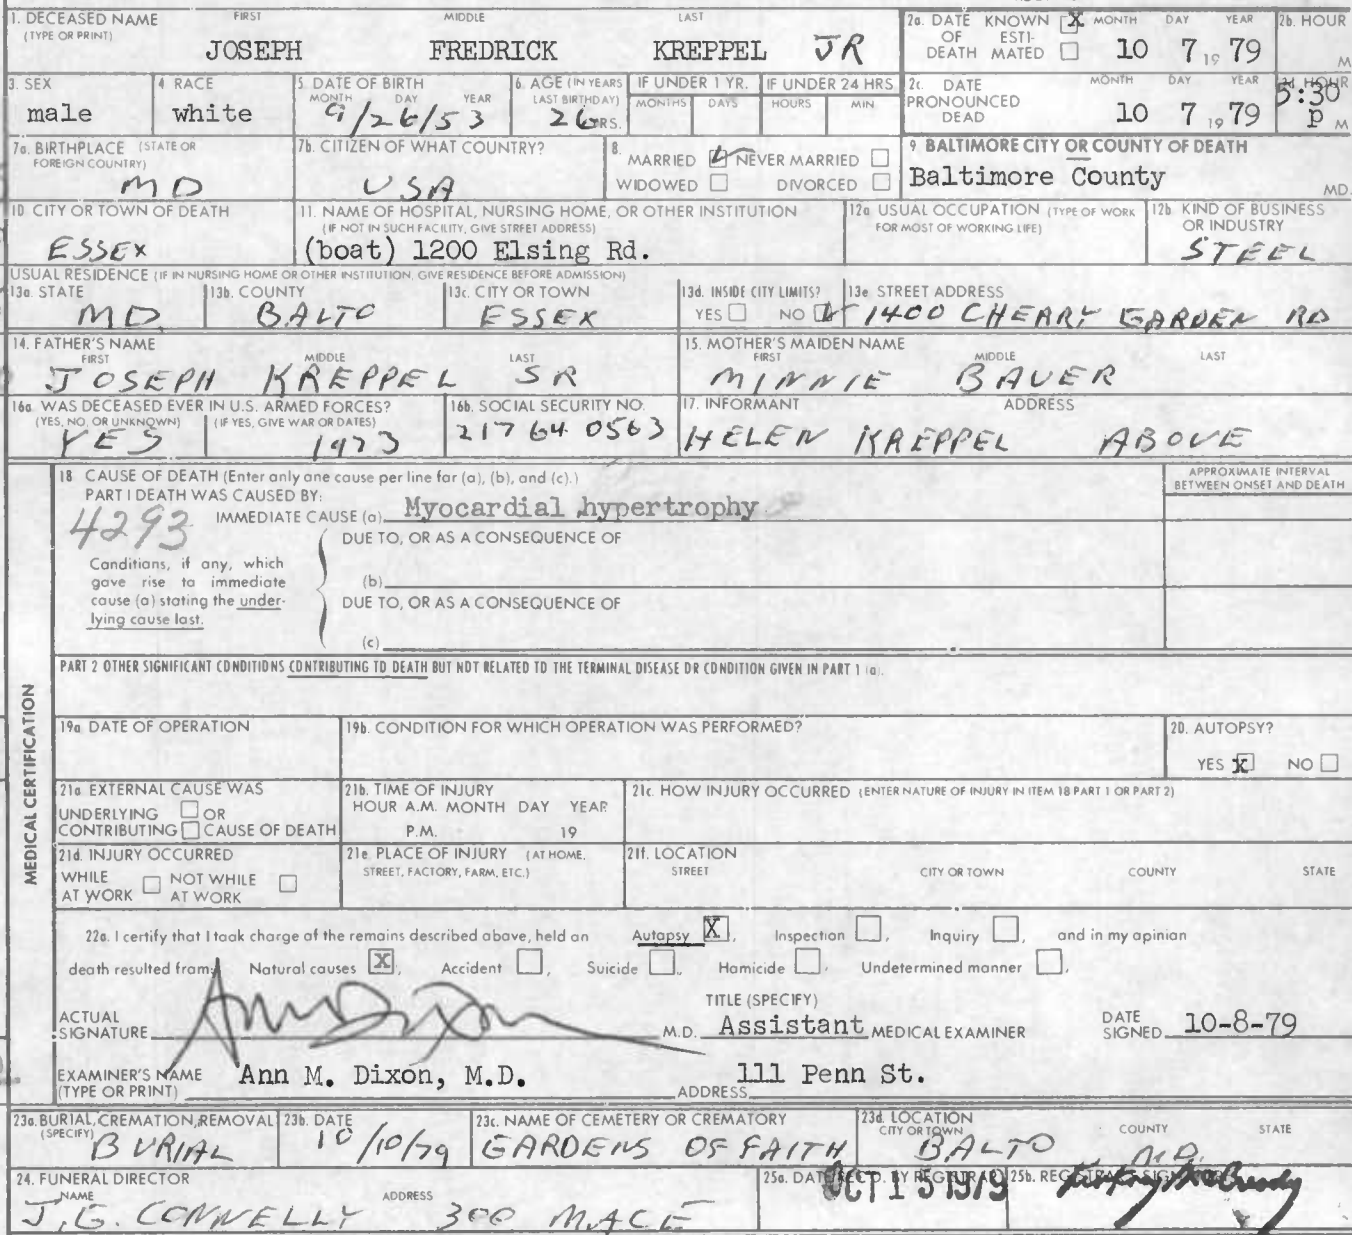 1. DECEASED NAME FIRST MIDDLE LAST
(TYPE OR PRINT)
JOSEPH FREDRICK KREPPEL JR
2a. DATE KNOWN X MONTH DAY YEAR
OF ESTI-
DEATH MATED
10 7 19 79
2b. HOUR
M
3. SEX
male
4 RACE
white
5. DATE OF BIRTH
MONTH DAY YEAR
9/26/53
6. AGE (IN YEARS
LAST BIRTHDAY)
26 YRS.
IF UNDER 1 YR.
MONTHS DAYS
IF UNDER 24 HRS
HOURS MIN
2c. DATE MONTH DAY YEAR
PRONOUNCED
DEAD
10 7 19 79
HOUR
5:30
P M
7a. BIRTHPLACE (STATE OR
FOREIGN COUNTRY)
MD
7b. CITIZEN OF WHAT COUNTRY?
USA
8.
MARRIED NEVER MARRIED
WIDOWED DIVORCED
9. BALTIMORE CITY OR COUNTY OF DEATH
Baltimore County
MD.
10. CITY OR TOWN OF DEATH
ESSEX
11. NAME OF HOSPITAL, NURSING HOME, OR OTHER INSTITUTION
(IF NOT IN SUCH FACILITY, GIVE STREET ADDRESS)
(boat) 1200 Elsing Rd.
12a USUAL OCCUPATION (TYPE OF WORK
FOR MOST OF WORKING LIFE)
12b KIND OF BUSINESS
OR INDUSTRY
STEEL
USUAL RESIDENCE (IF IN NURSING HOME OR OTHER INSTITUTION, GIVE RESIDENCE BEFORE ADMISSION)
13a. STATE
MD
13b. COUNTY
BALTO
13c. CITY OR TOWN
ESSEX
13d. INSIDE CITY LIMITS?
YES NO
13e STREET ADDRESS
1400 CHEARY GARDEN RD
14. FATHER'S NAME
FIRST MIDDLE LAST
JOSEPH KREPPEL SR
15. MOTHER'S MAIDEN NAME
FIRST MIDDLE LAST
MINNIE BAUER
16a WAS DECEASED EVER IN U.S. ARMED FORCES?
(YES, NO, OR UNKNOWN) (IF YES, GIVE WAR OR DATES)
YES 1973
16b. SOCIAL SECURITY NO.
217 64 0563
17. INFORMANT ADDRESS
HELEN KREPPEL ABOVE
MEDICAL CERTIFICATION
18 CAUSE OF DEATH (Enter only one cause per line for (a), (b), and (c).)
PART I DEATH WAS CAUSED BY:
APPROXIMATE INTERVAL
BETWEEN ONSET AND DEATH
4293
IMMEDIATE CAUSE (a) Myocardial hypertrophy
DUE TO, OR AS A CONSEQUENCE OF
Conditions, if any, which
gave rise to immediate
cause (a) stating the under-
lying cause last.
(b)
DUE TO, OR AS A CONSEQUENCE OF
(c)
PART 2 OTHER SIGNIFICANT CONDITIONS CONTRIBUTING TO DEATH BUT NOT RELATED TO THE TERMINAL DISEASE OR CONDITION GIVEN IN PART 1 (a).
19a DATE OF OPERATION
19b. CONDITION FOR WHICH OPERATION WAS PERFORMED?
20. AUTOPSY?
YES X NO
21a EXTERNAL CAUSE WAS
UNDERLYING OR
CONTRIBUTING CAUSE OF DEATH
21b. TIME OF INJURY
HOUR A.M. MONTH DAY YEAR
P.M. 19
21c. HOW INJURY OCCURRED (ENTER NATURE OF INJURY IN ITEM 18 PART 1 OR PART 2)
21d. INJURY OCCURRED
WHILE NOT WHILE
AT WORK AT WORK
21e PLACE OF INJURY (AT HOME,
STREET, FACTORY, FARM, ETC.)
21f. LOCATION
STREET CITY OR TOWN COUNTY STATE
22a. I certify that I took charge of the remains described above, held an Autopsy X, Inspection , Inquiry , and in my opinion
death resulted from: Natural causes X, Accident , Suicide , Homicide , Undetermined manner .
ACTUAL
SIGNATURE Ann Dixon M.D.
TITLE (SPECIFY)
Assistant MEDICAL EXAMINER
DATE
SIGNED 10-8-79
EXAMINER'S NAME
(TYPE OR PRINT) Ann M. Dixon, M.D.
ADDRESS 111 Penn St.
23a. BURIAL, CREMATION, REMOVAL
(SPECIFY)
BURIAL
23b. DATE
10/10/79
23c. NAME OF CEMETERY OR CREMATORY
GARDENS OF FAITH
23d. LOCATION
CITY OR TOWN COUNTY STATE
BALTO MD.
24. FUNERAL DIRECTOR
NAME ADDRESS
J.G. CONNELLY 300 MACE
25a. DATE REC'D. BY REGISTRAR
OCT 15 1979
25b. REGISTRAR'S SIGNATURE